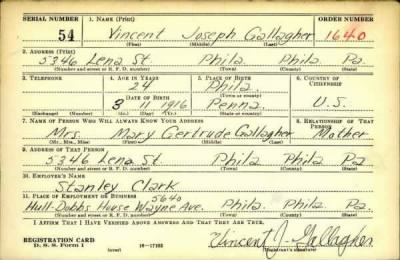 SERIAL NUMBER 1. NAME (Print) ORDER NUMBER
54 Vincent Joseph Gallagher 1640
(First) (Middle) (Last)
2. ADDRESS (Print)
5346 Lena St. Phila. Phila Pa.
(Number and street or R. F. D. number) (Town) (County) (State)
3. TELEPHONE 4. AGE IN YEARS 5. PLACE OF BIRTH 6. COUNTRY OF CITIZENSHIP
24 Phila.
DATE OF BIRTH (Town or county)
3 11 1916 Penna. U.S.
(Exchange) (Number) (Mo.) (Day) (Yr.) (State or country)
7. NAME OF PERSON WHO WILL ALWAYS KNOW YOUR ADDRESS 8. RELATIONSHIP OF THAT PERSON
Mrs. Mary Gertrude Gallagher Mother
(Mr., Mrs., Miss) (First) (Middle) (Last)
9. ADDRESS OF THAT PERSON
5346 Lena St. Phila. Phila Pa.
(Number and street or R. F. D. number) (Town) (County) (State)
10. EMPLOYER'S NAME
Stanley Clark
11. PLACE OF EMPLOYMENT OR BUSINESS
5640
Hull-Dobbs House Wayne Ave. Phila. Phila Pa.
(Number and street or R. F. D. number) (Town) (County) (State)
I AFFIRM THAT I HAVE VERIFIED ABOVE ANSWERS AND THAT THEY ARE TRUE.
REGISTRATION CARD
D. S. S. Form 1 16—17105 Vincent J. Gallagher
(Registrant's signature)